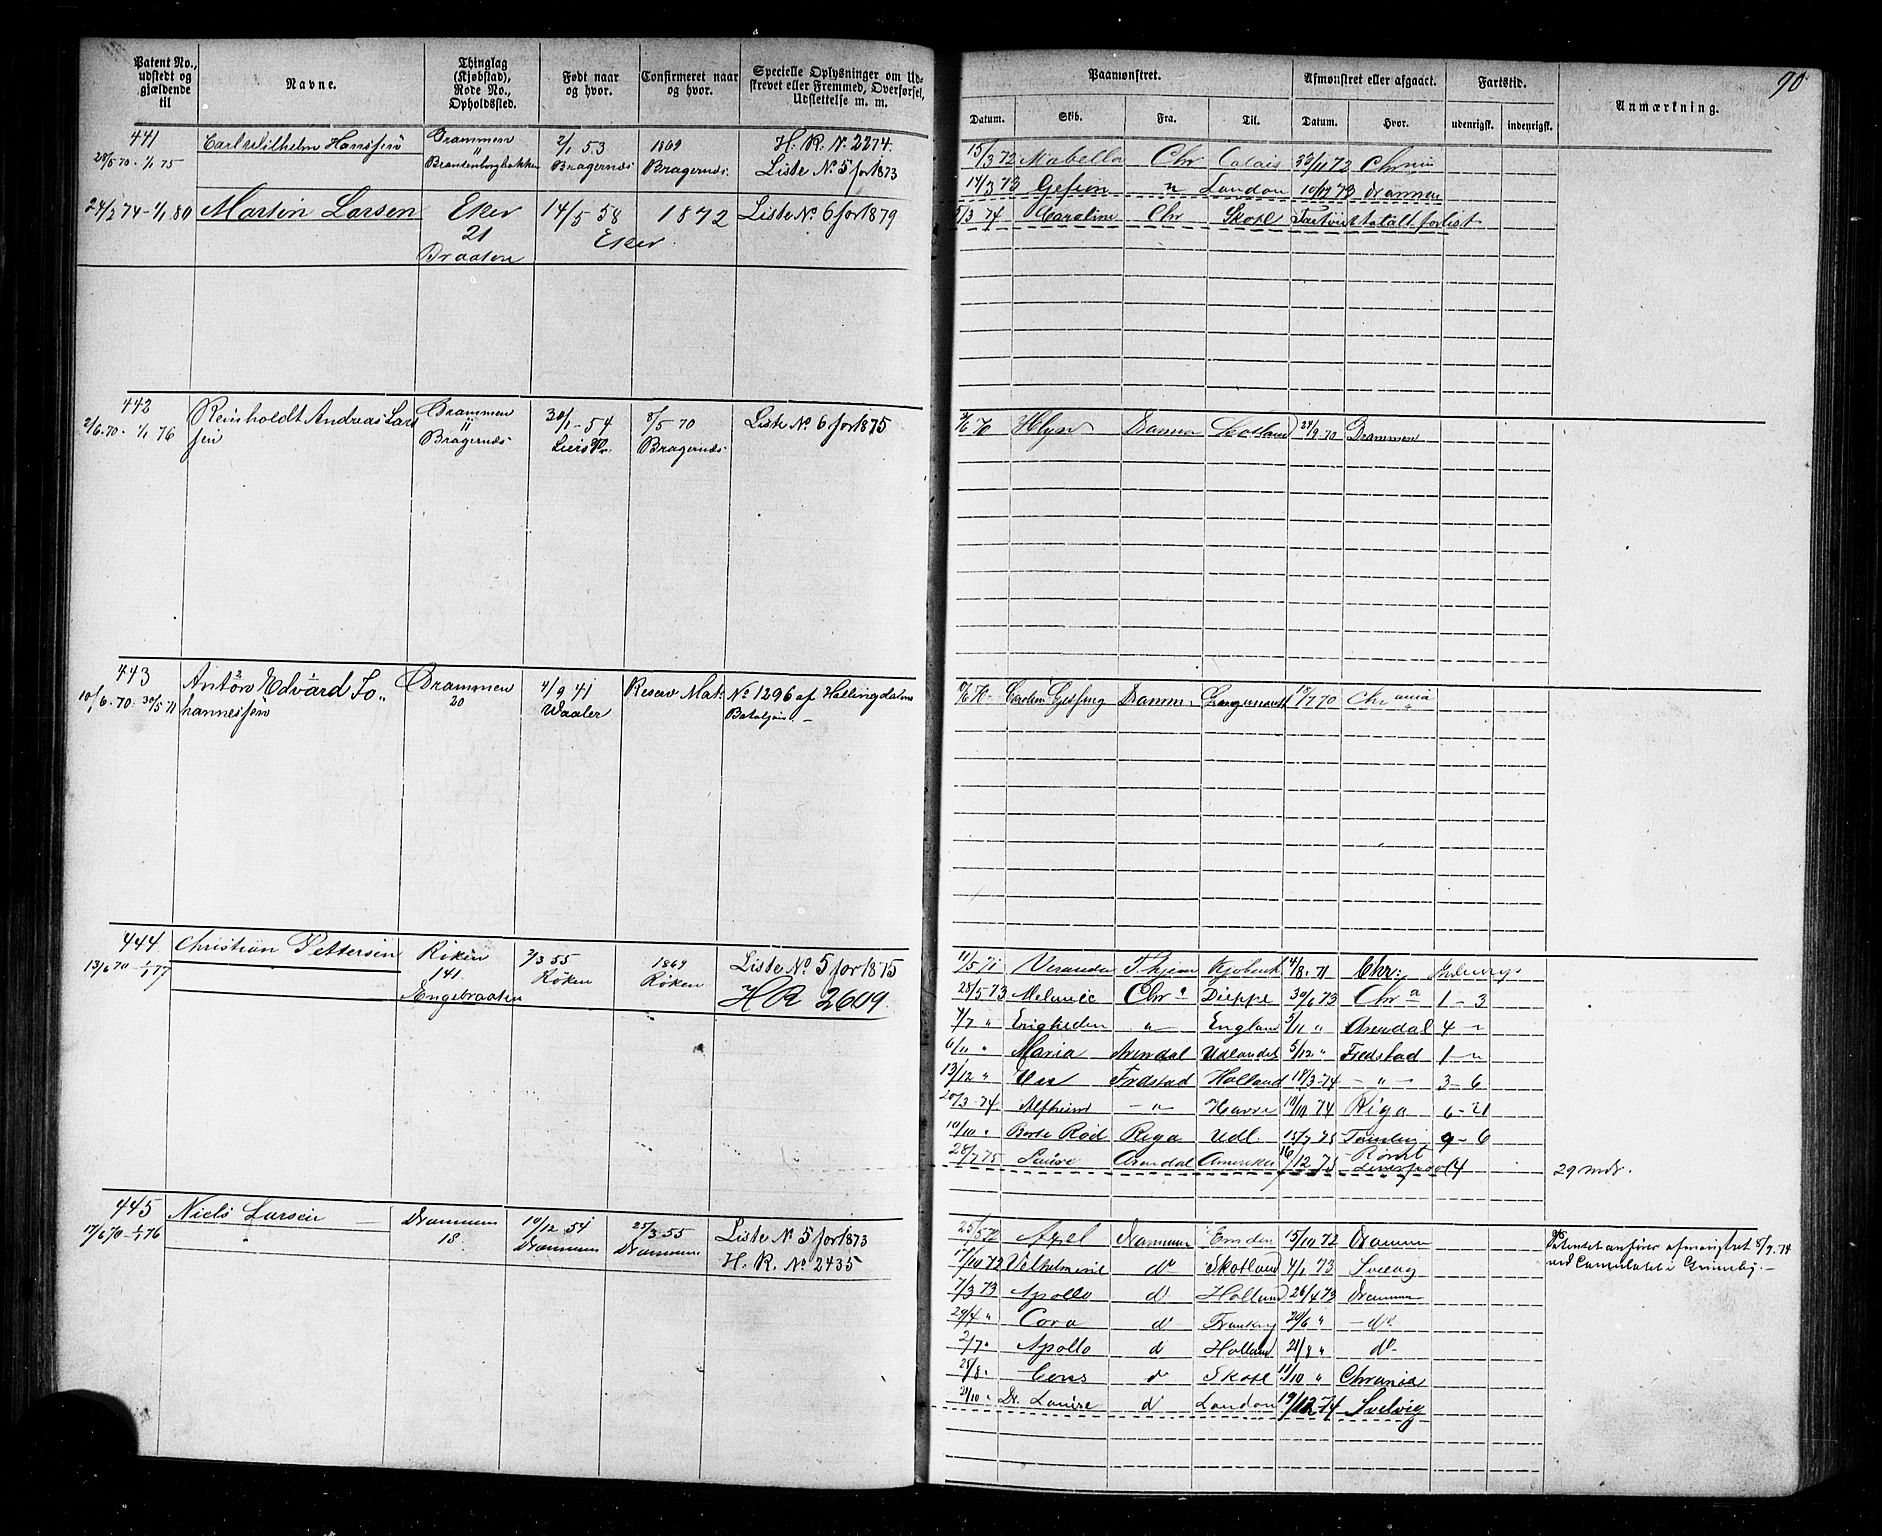 Patent No., udstedt og gjældende til
Navne.
Thinglag (Kjøbstad), Rode No., Opholdssted.
Født naar og hvor.
Confirmeret naar og hvor.
Specielle Oplysninger om Udskrevet eller Fremmed, Overførsel, Udslettelse m. m.
Paamønstret.
Afmønstret eller afgaaet.
Fartstid.
Anmærkning.
90
Datum. Skib. Fra. Til. Datum. Hvor. udenrigst. indenrigst.
441 Carl Vilhelm Hanssen Drammen 2/1 53 1869 H. R. N. 2274.
28/5 70 - 1/1 75 Brandenborgbakken Bragernæs Bragernæs. Liste No 5 for 1873
15/3 72 Mabella Chr Calais 11 72 Chrnia
14/3 73 Gefion " London 10/12 73 Dramen
24/3 74 - 1/1 80 Martin Larsen Eker 14/5 58 1872 Liste No 6 for 1879
21 Eker.
Braaten
5/3 74 Caroline Chr Skotl totalt forlist
442 Reinholdt Andreas Lars Drammen 30/1 - 54 8/5 70 Liste No 6 for 1875
2/6. 70 - 1/1 76 sen 11 Bragernæs Lier Bragernæs
2/6 70 Damen Skotland 24/9 70 Drammen
443 Anton Edvard Jo- Drammen 4/9 41 Reserv Mat. No 1296 af Hallingdalens
10/6. 70. 30/5 71 hannessen 20 Waaler Bataljon -
10/6 70. Caroline Dramm. 18/7 70 Chrania
444 Christian Pettersen Røken 2/3 55 1869 Liste No 5 for 1875
13/6 70 - 1/1 77 141. Røken Røken H R 2609.
Engebraaten
11/5 71 Veranda Kjøbenh 4/8. 71 Chr:
28/5 73 Chr a Dieppe 30/6 73 Chr a 1 - 3
7/7 " Enigheden " England 3/11 " Arendal 4 "
6/11 " Maria Arendal Udlandet 5/12 " Fredstad 1 - "
13/12 " Fredstad Holland 18/3 - 74 - " - 3 - 6
20/3 - 74. Alfheim - " Havre 10/10 74 Riga 6 - 21
10/10 " Riga Udl. 15/7 75 9 - 6
28/7 75 Arendal Amerika 16/12 75 Rømt Liverpool 4 29 mdr.
445 Niels Larsen Drammen 10/12 54 25/3 55 Liste N 5 for 1873
17/6 70 - 1/1 76 18. Drammen Drammen H. R. No 2435
25/5 72 Axel Drammen Emden 15/10 72 Drammen
17/10 72 Vilhelmine do Skotland 4/1 73 Svelvig
7/3 73 Apollo d Holland 26/4 73 Drammen
29/4 " Cora d Frankrig 20/6 " - do
2/7 " Apollo d Holland 21/8 " do
28/8. Ceres d Skotl 11/10 " Chrania
21/10 " Dr. Louise d London 19/12 74 Svelvig
Patentet anfører afmønstret 8/9. 74
ved Consulatet i Grimsby. -